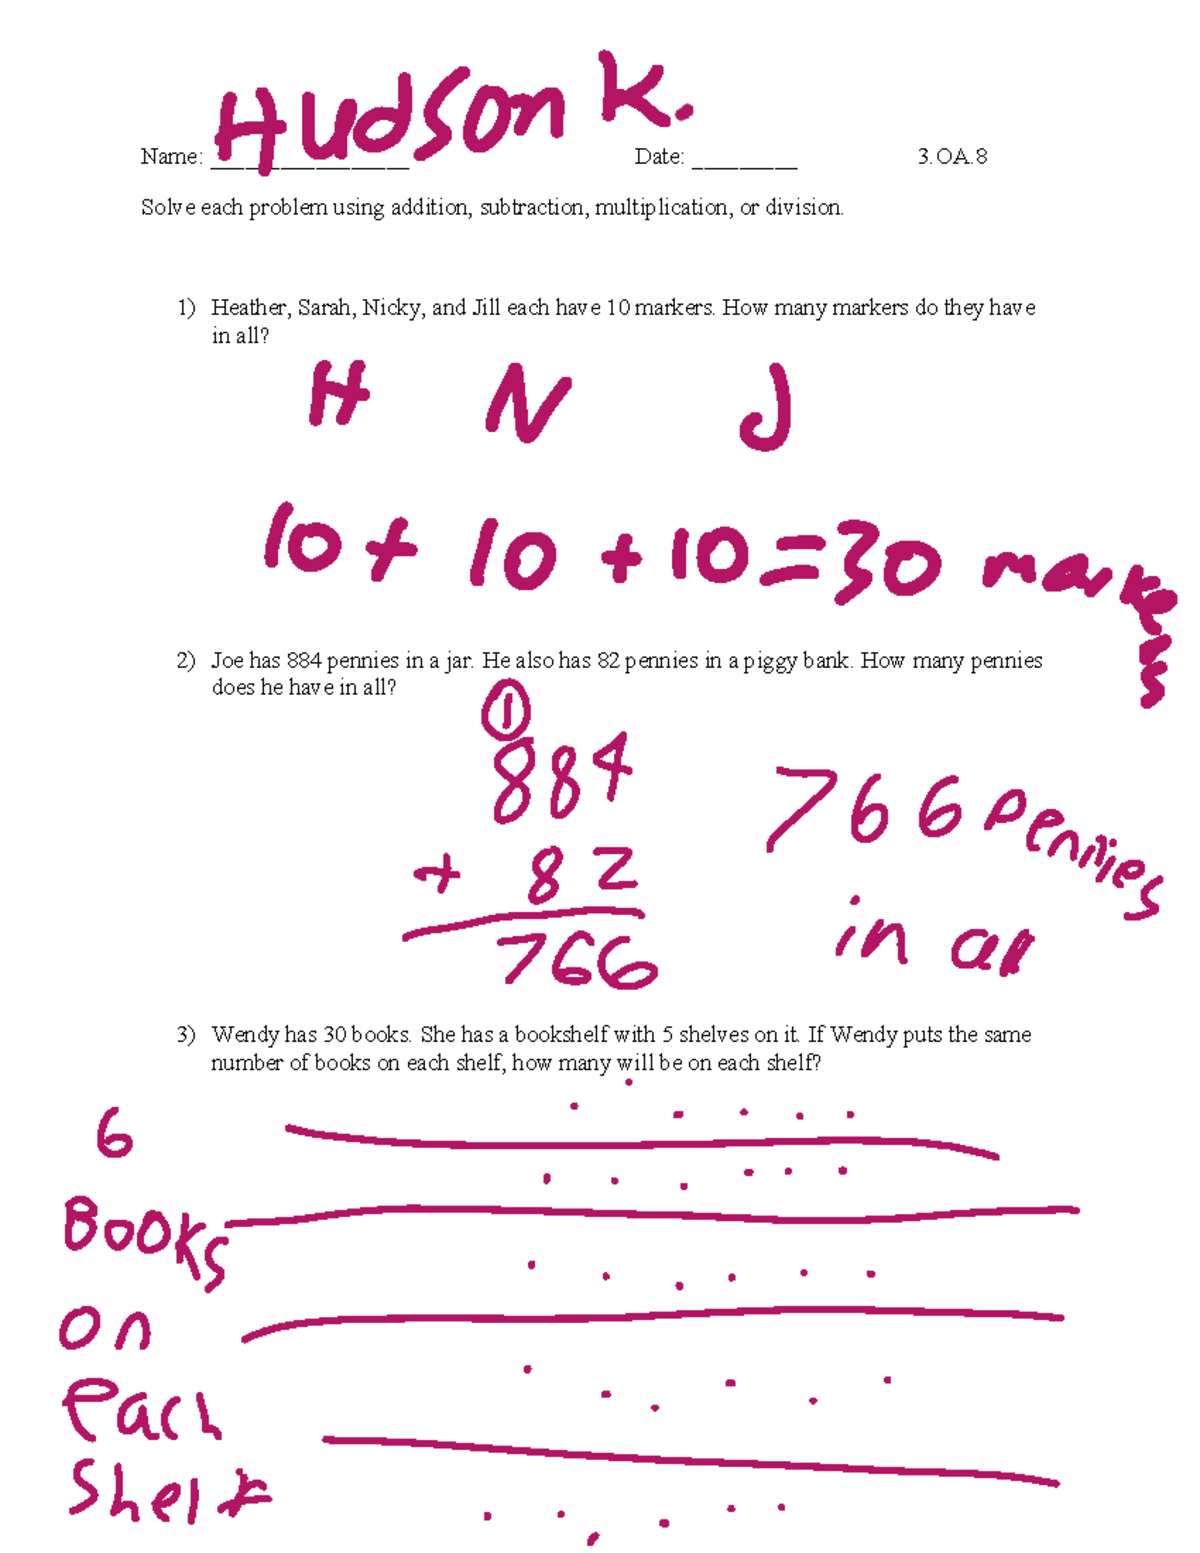 Hudson K.
Name: _________________ Date: _________ 3.OA.8
Solve each problem using addition, subtraction, multiplication, or division.
1) Heather, Sarah, Nicky, and Jill each have 10 markers. How many markers do they have
in all?
H N J
10 + 10 + 10 = 30 markers
2) Joe has 884 pennies in a jar. He also has 82 pennies in a piggy bank. How many pennies
does he have in all?
1
884
+ 82
766
766 pennies
in all
3) Wendy has 30 books. She has a bookshelf with 5 shelves on it. If Wendy puts the same
number of books on each shelf, how many will be on each shelf?
6
Books
on
each
Shelf